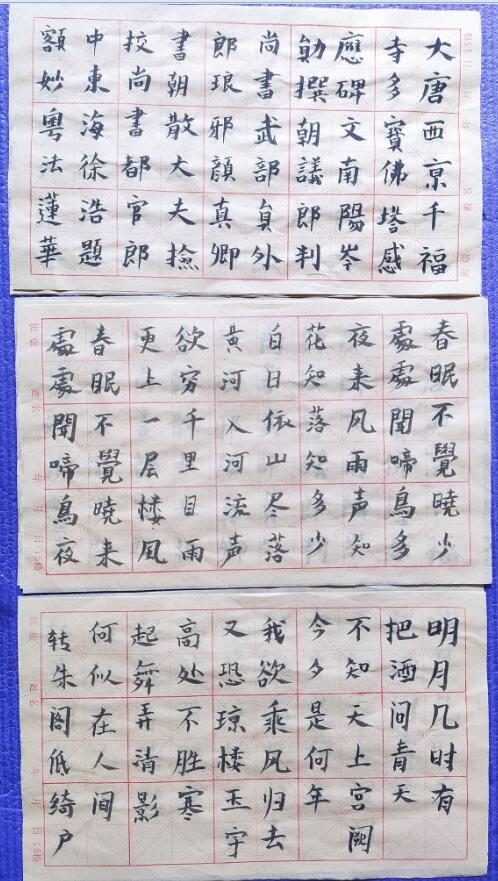 大唐西亰千福
寺多寶佛塔感
應碑文南陽岑
勛撰朝議郎判
尚書武部員外
郎琅邪顏真卿
書朝散大夫撿
挍尚書都官郎
中東海徐浩題
額妙粵法蓮華
春眠不覺曉少
處處聞啼鳥多
夜来风雨声知
花知落知多少
白日依山尽落
黄河入河流声
欲穷千里目雨
更上一层楼风
春眠不覺曉来
處處聞啼鳥夜
明月几时有
把酒问青天
不知天上宫阙
今夕是何年
我欲乘风归去
又恐琼楼玉宇
高处不胜寒
起舞弄清影
何似在人间
转朱阁低绮户